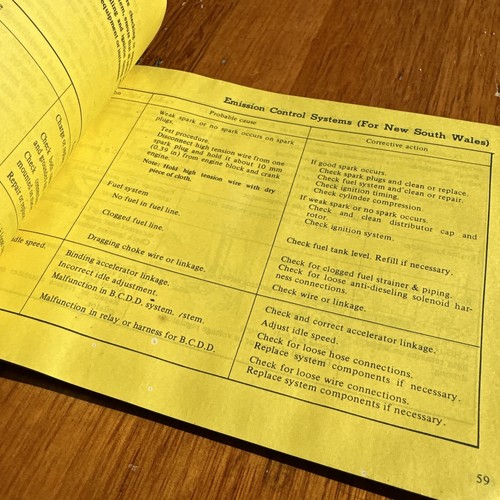 Emission Control Systems (For New South Wales)
Probable cause
Corrective action
Weak spark or no spark occurs on spark
plugs.
Test procedure.
Disconnect high tension wire from one
spark plug and hold it about 10 mm
(0.39 in) from engine block and crank
engine.
Note: Hold high tension wire with dry
piece of cloth.
If good spark occurs.
Check spark plugs and clean or replace.
Check fuel system and clean or repair.
Check ignition timing.
Check cylinder compression.
If weak spark or no spark occurs.
Check and clean distributor cap and
rotor.
Check ignition system.
Fuel system
No fuel in fuel line.
Check fuel tank level. Refill if necessary.
Clogged fuel line.
Check for clogged fuel strainer & piping.
Check for loose anti-dieseling solenoid har-
ness connections.
Dragging choke wire or linkage.
Check wire or linkage.
idle speed.
Binding accelerator linkage.
Check and correct accelerator linkage.
Incorrect idle adjustment.
Adjust idle speed.
Malfunction in B.C.D.D. system. /stem.
Check for loose hose connections.
Replace system components if necessary.
Malfunction in relay or harness for B.C.D.D.
Check for loose wire connections.
Replace system components if necessary.
59